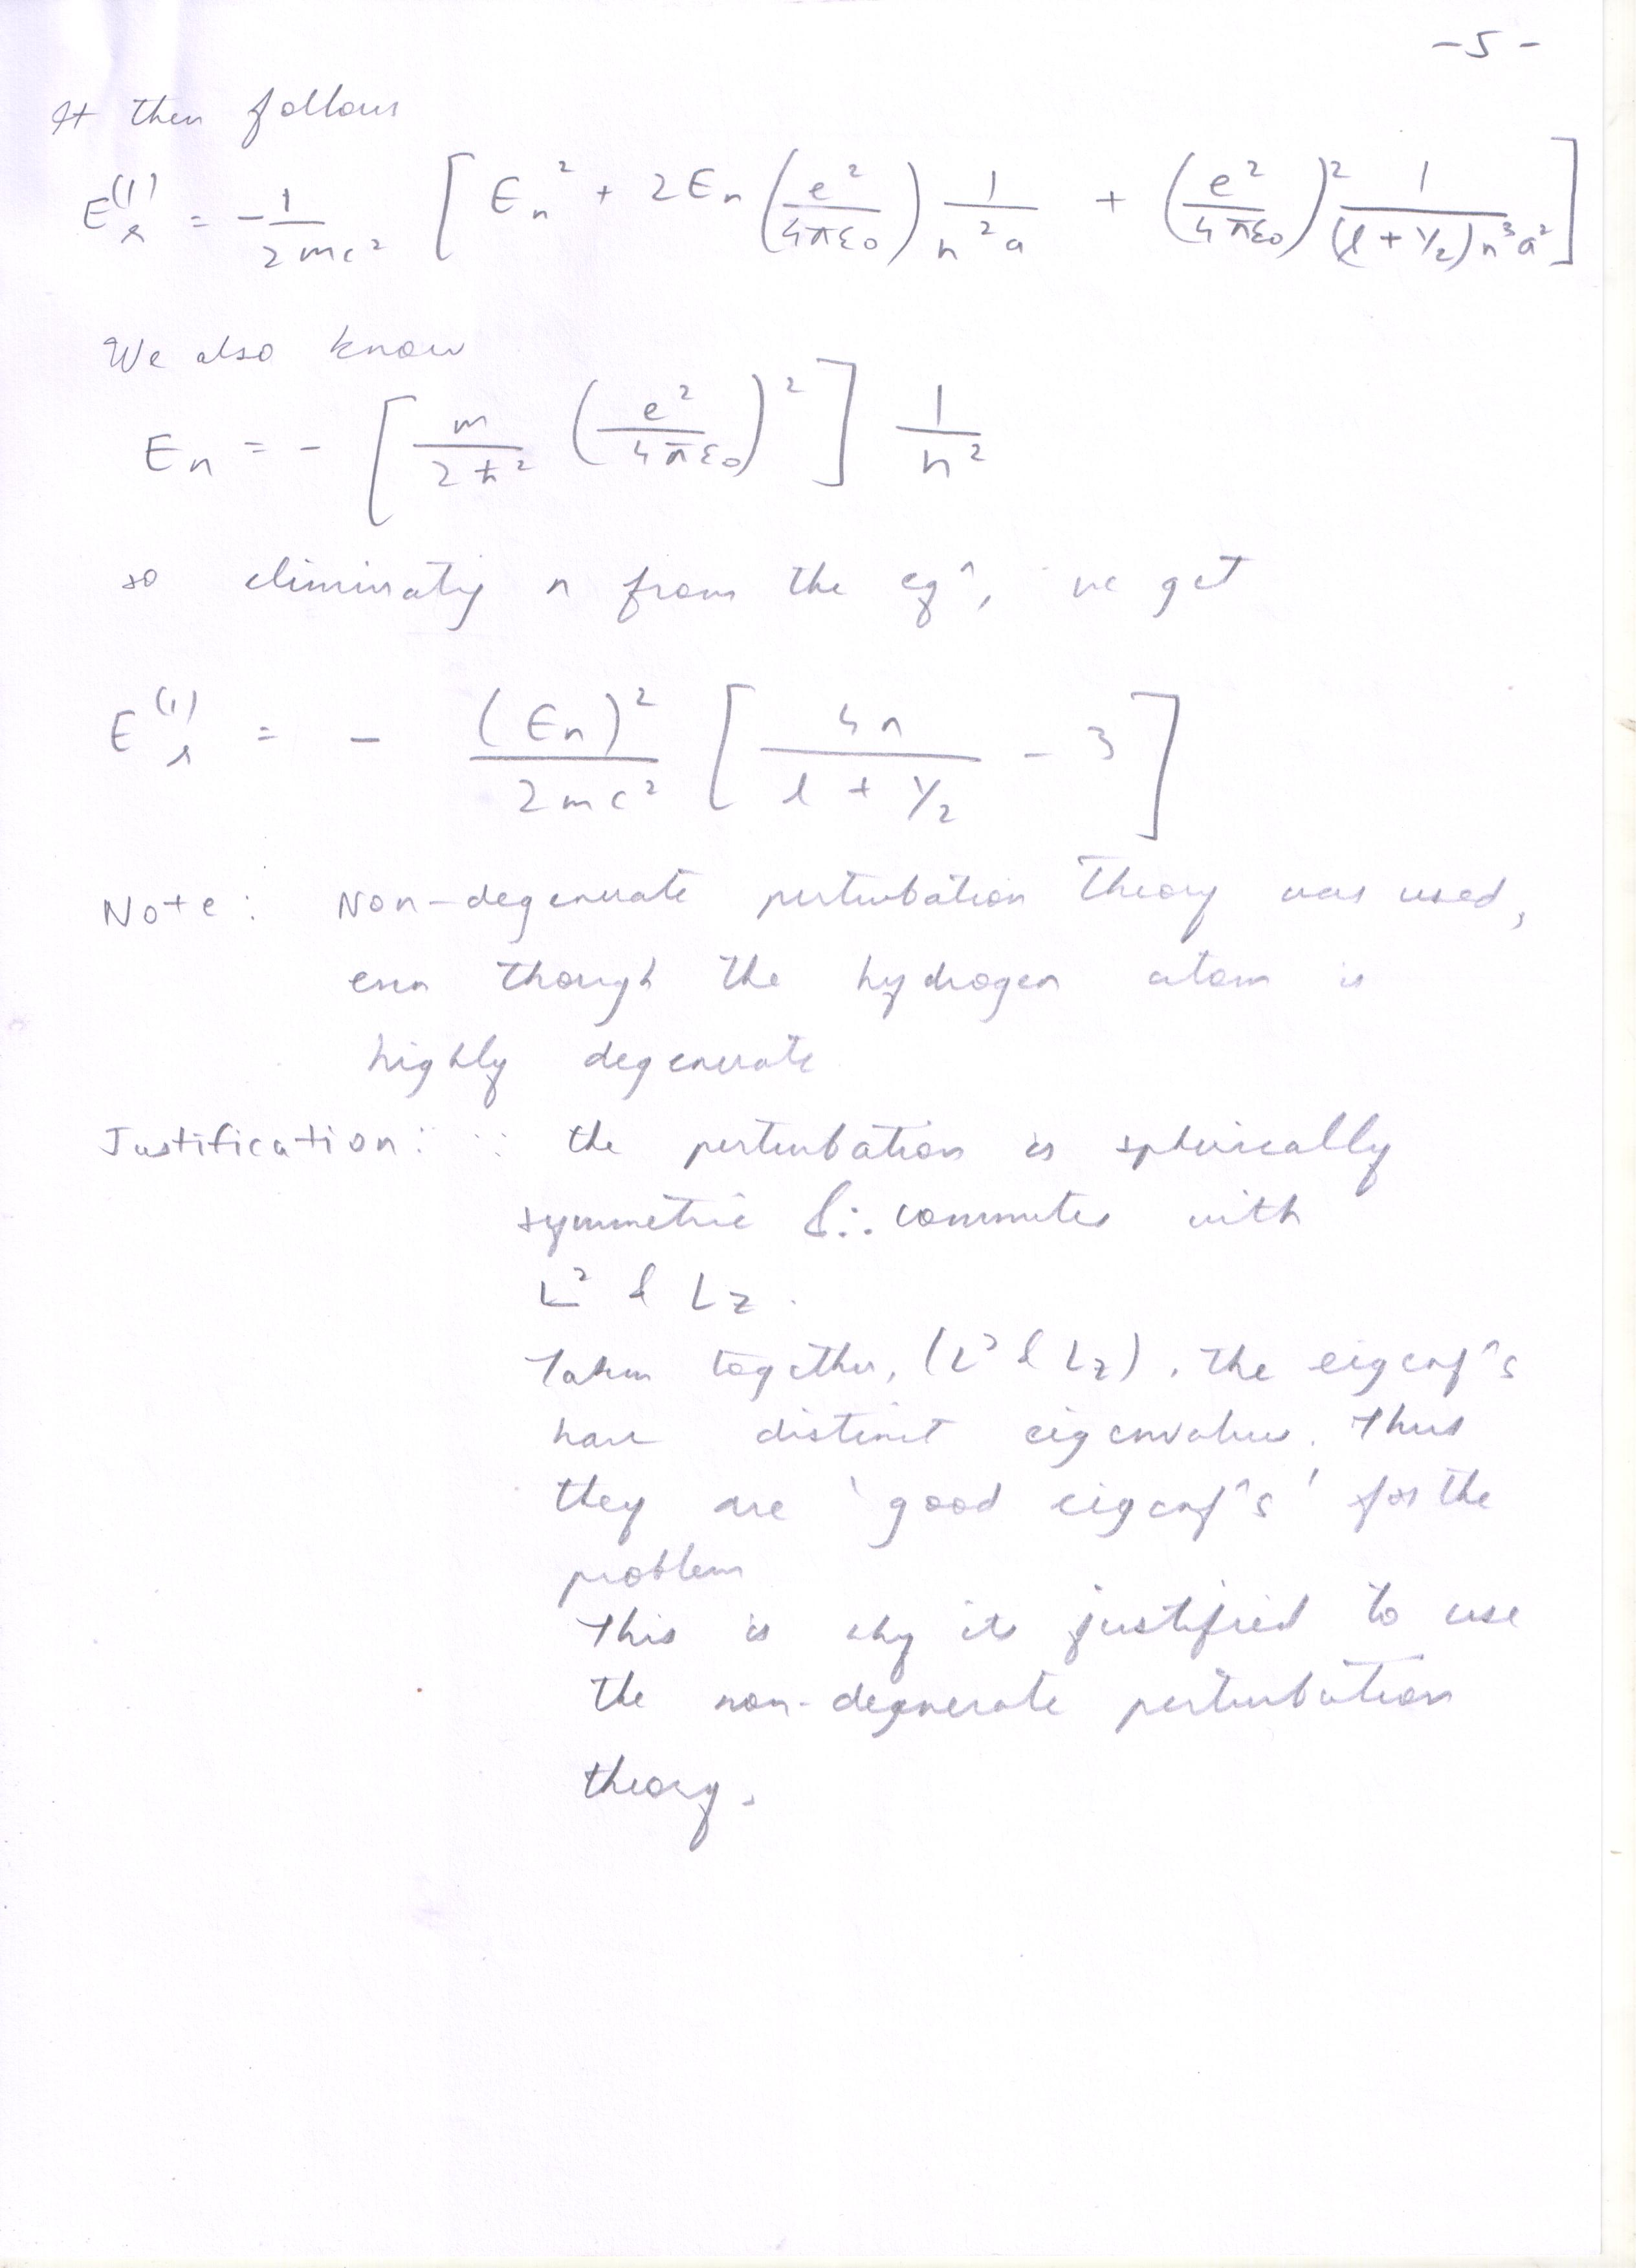 -5-
It then follows
E_r^(1) = -1/2mc² [ En² + 2En (e²/4πε0) 1/n²a + (e²/4πε0)² 1/(l + 1/2)n³a² ]
We also know
En = - [ m/2ħ² (e²/4πε0)² ] 1/n²
so eliminatig n from the eq^n, we get
E_r^(1) = - (En)²/2mc² [ 4n/l + 1/2 - 3 ]
Note: Non-degenerate perturbation theory was used,
even though the hydrogen atom is
highly degenerate
Justification: ∵ the perturbation is spherically
symmetric & ∴ commutes with
L² & Lz.
Taken together, (L² & Lz), the eigenf^n's
have distinct eigenvalues. Thus
they are 'good eigenf^n's' for the
problem
This is why its justified to use
the non-degenerate perturbation
theory.